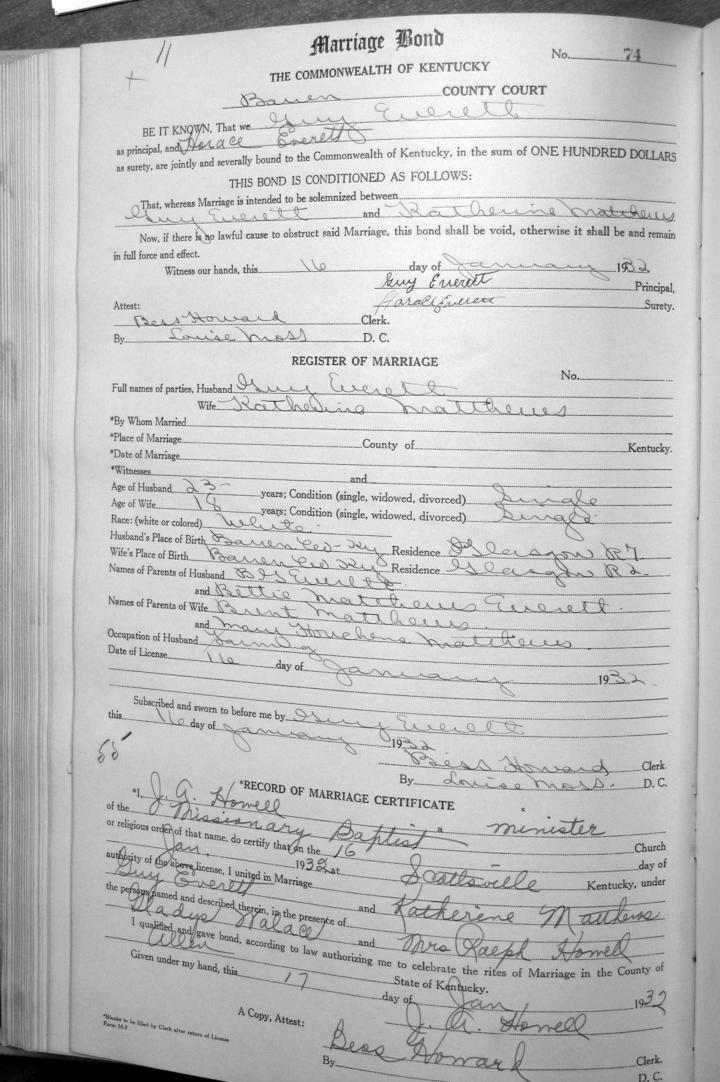 11
Marriage Bond
No. 74
THE COMMONWEALTH OF KENTUCKY
Barren COUNTY COURT
BE IT KNOWN, That we Guy Everett
as principal, and Horace Everett
as surety, are jointly and severally bound to the Commonwealth of Kentucky, in the sum of ONE HUNDRED DOLLARS
THIS BOND IS CONDITIONED AS FOLLOWS:
That, whereas Marriage is intended to be solemnized between
Guy Everett and Katherine Matthews
Now, if there is no lawful cause to obstruct said Marriage, this bond shall be void, otherwise it shall be and remain
in full force and effect.
Witness our hands, this 16 day of January 1932
Guy Everett Principal,
Horace Everett Surety.
Attest:
Bess Howard Clerk.
By Louise Moss D. C.
REGISTER OF MARRIAGE
No.
Full names of parties, Husband Guy Everett
Wife Katherine Matthews
*By Whom Married
*Place of Marriage County of Kentucky.
*Date of Marriage
*Witnesses and
Age of Husband 23 years; Condition (single, widowed, divorced) Single
Age of Wife 18 years; Condition (single, widowed, divorced) Single
Race: (white or colored) White
Husband's Place of Birth Barren Co-Ky Residence Glasgow R 7
Wife's Place of Birth Barren Co Ky Residence Glasgow R 2
Names of Parents of Husband B G Everett
and Bettie Matthews Everett
Names of Parents of Wife Brent Matthews
and Mary Houchens Matthews
Occupation of Husband Farming
Date of License 16 day of January 1932
Subscribed and sworn to before me by Guy Everett
this 16 day of January 1932
Bess Howard Clerk
By Louise Moss. D. C.
55
*RECORD OF MARRIAGE CERTIFICATE
*I, J. A. Howell a minister
of the Missionary Baptist Church
or religious order of that name, do certify that on the 16 day of
Jan, 1932 at Scottsville Kentucky, under
authority of the above license, I united in Marriage
Guy Everett and Katherene Matthews
the persons named and described therein, in the presence of
Gladys Walace and Mrs Ralph Howell
I qualified and gave bond, according to law authorizing me to celebrate the rites of Marriage in the County of
Allen State of Kentucky.
Given under my hand, this 17 day of Jan, 1932
J. A. Howell
A Copy, Attest:
Bess Howard Clerk.
By D. C.
*Blanks to be filled by Clerk after return of License